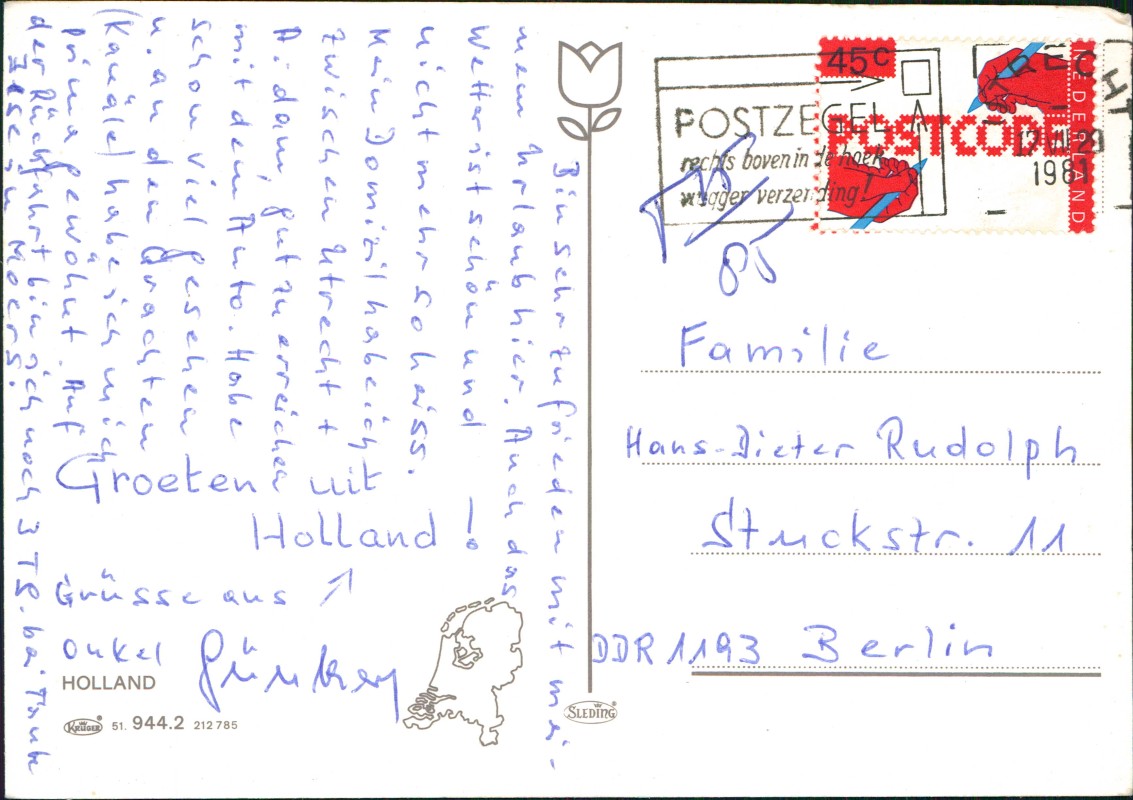 Bin sehr zufrieden mit mei-
nem Urlaub hier. Auch das
Wetter ist schön und
nicht mehr so heiss.
Mein Domizil habe ich
zwischen Utrecht +
A.dam gut zu erreichen
mit dem Auto. Habe
schon viel gesehen
u. an den Grachten
(Kanäle) habe ich mich
prima gewöhnt. Auf
der Rückfahrt bin ich noch 3 Tg. bei Tante
Ilse in Moers.
Groeten uit
Holland!
Grüsse aus ↗
Onkel
HOLLAND
KRÜGER 51. 944.2 212 785
SLEDING
45c
POSTCODE
NEDERLAND
POSTZEGEL
rechts boven in de hoek
vlugger verzending!
UTRECHT
1981
85
Familie
Hans-Dieter Rudolph
Stuckstr. 11
DDR 1193 Berlin